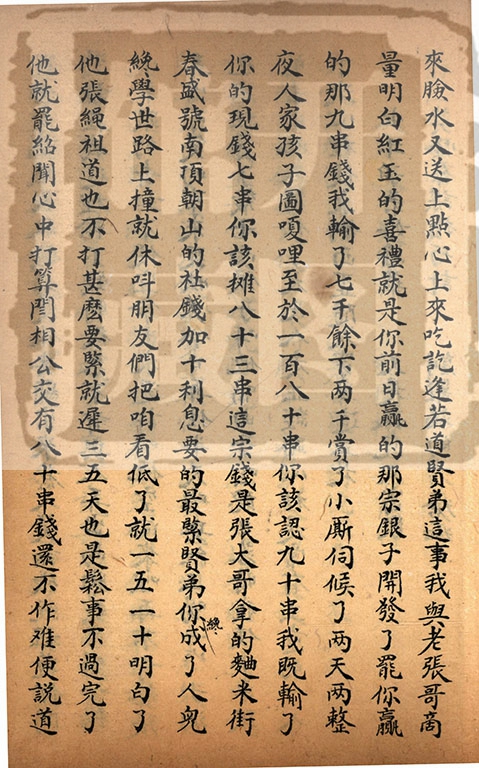 來臉水又送上點心上來吃訖逢若道賢弟這事我與老張哥商
量明白紅玉的喜禮就是你前日贏的那宗銀子開發了罷你贏
的那九串錢我輸了七千餘下两千賞了小厮伺候了两天两整
夜人家孩子圖嗄哩至於一百八十串你該認九十串我既輸了
你的現錢七串你該攤八十三串這宗錢是張大哥拿的麯米街
春盛號南頂朝山的社錢加十利息要的最緊賢弟你成了人兒
纔學世路上撞就休呌朋友們把咱看低了就一五一十明白了
他張繩祖道也不打甚麽要緊就遲三五天也是鬆事不過完了
他就罷紹聞心中打算閆相公交有八十串錢還不作难便説道
纔